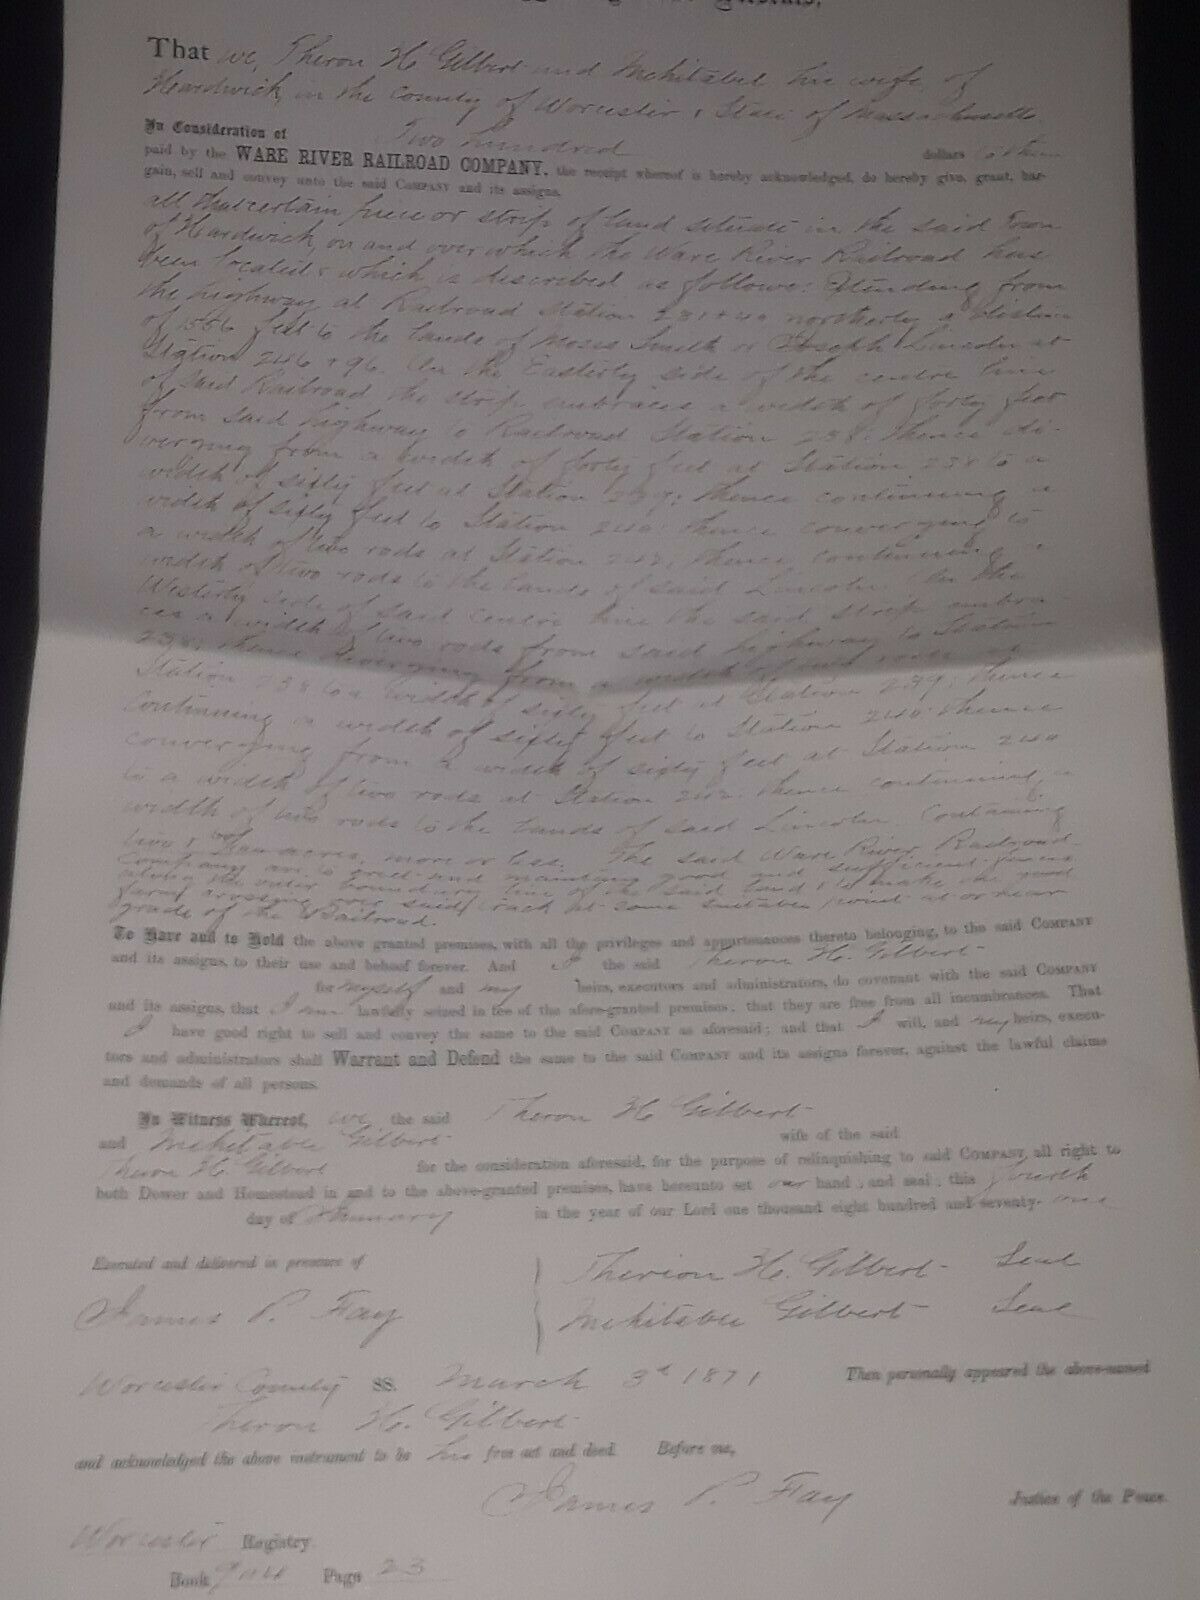 That we, Theron H. Gilbert and Mehitabel his wife, of
Hardwick, in the County of Worcester & State of Massachusetts
In Consideration of Two hundred dollars to them
paid by the WARE RIVER RAILROAD COMPANY, the receipt whereof is hereby acknowledged, do hereby give, grant, bar-
gain, sell and convey unto the said COMPANY and its assigns,
all that certain piece or strip of land situate in the said Town
of Hardwick, on and over which the Ware River Railroad has
been located & which is described as follows: Extending from
the highway at Railroad Station 231+40 northerly a distance
of 1556 feet to the lands of Moses Smith or Joseph Lincoln at
Station 246+96. On the Easterly side of the centre line
of said Railroad the strip embraces a width of forty feet
from said highway to Railroad Station 238: thence di-
verging from a width of forty feet at Station 238 to a
width of sixty feet at Station 239; thence continuing a
width of sixty feet to Station 240: thence converging to
a width of two rods at Station 242; thence continuing a
width of two rods to the lands of said Lincoln. On the
Westerly side of said centre line the said strip embra-
ces a width of two rods from said highway to Station
238; thence diverging from a width of two rods at
Station 238 to a width of sixty feet at Station 239; thence
continuing a width of sixty feet to Station 240: thence
converging from a width of sixty feet at Station 240
to a width of two rods at Station 242: thence continuing a
width of two rods to the lands of said Lincoln. Containing
two & acres, more or less. The said Ware River Railroad
Company are to erect and maintain good and sufficient fences
along the outer boundary line of the said land & to make one good
farm crossing over said track at some suitable point at or near
grade of the Railroad.
To Have and to Hold the above granted premises, with all the privileges and appurtenances thereto belonging, to the said COMPANY
and its assigns, to their use and behoof forever. And I the said Theron H. Gilbert
for myself and my heirs, executors and administrators, do covenant with the said COMPANY
and its assigns, that I am lawfully seized in fee of the afore-granted premises; that they are free from all incumbrances. That
I have good right to sell and convey the same to the said COMPANY as aforesaid; and that I will, and my heirs, execu-
tors and administrators shall Warrant and Defend the same to the said COMPANY and its assigns forever, against the lawful claims
and demands of all persons.
In Witness Whereof, we the said Theron H Gilbert
and Mehitable Gilbert wife of the said
Theron H. Gilbert for the consideration aforesaid, for the purpose of relinquishing to said COMPANY, all right to
both Dower and Homestead in and to the above-granted premises, have hereunto set our hand, and seal, this fourth
day of January in the year of our Lord one thousand eight hundred and seventy-one
Executed and delivered in presence of
Therion H. Gilbert Seal
James P. Fay
Mehitable Gilbert Seal
Worcester County SS. March 3d 1871 Then personally appeared the above-named
Theron H. Gilbert
and acknowledged the above instrument to be his free act and deed. Before me,
James P. Fay
Justice of the Peace.
Worcester Registry.
Book Page 23